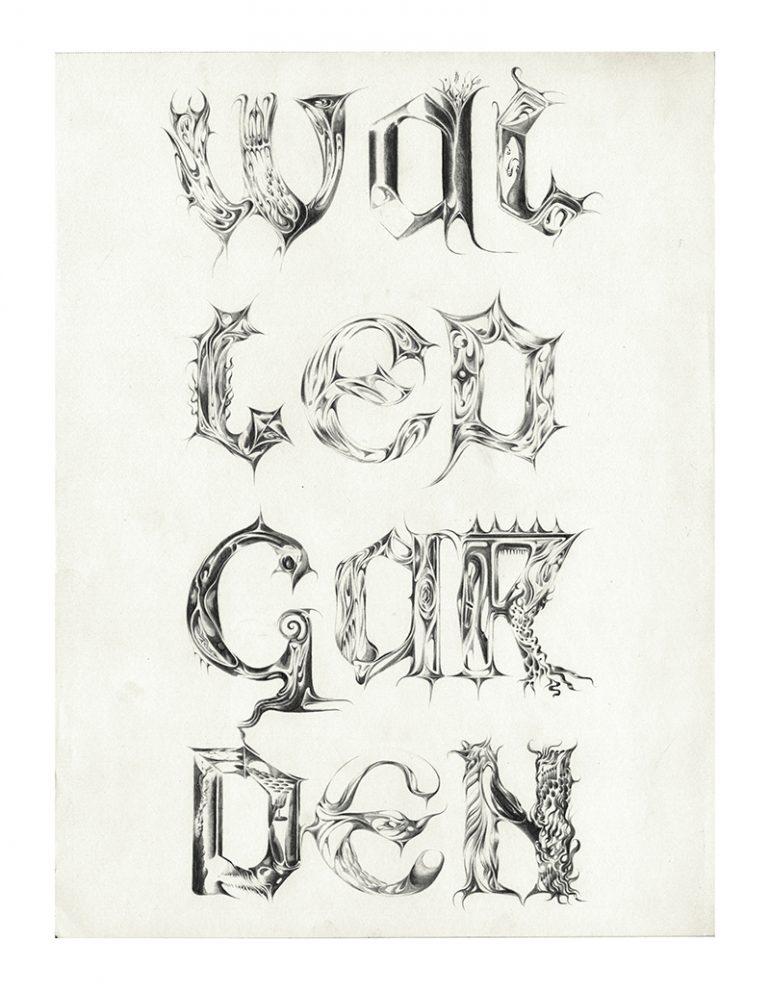 WaL
LeD
GaR
DEN